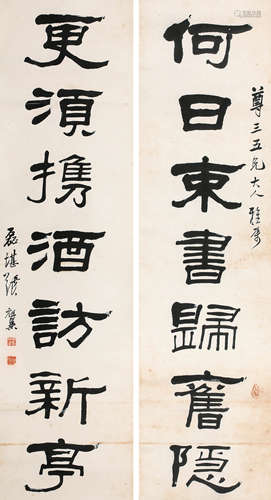 何日束書歸舊隱
尊三五兄大人雅屬
更須携酒訪新亭
磊堪張祖翼